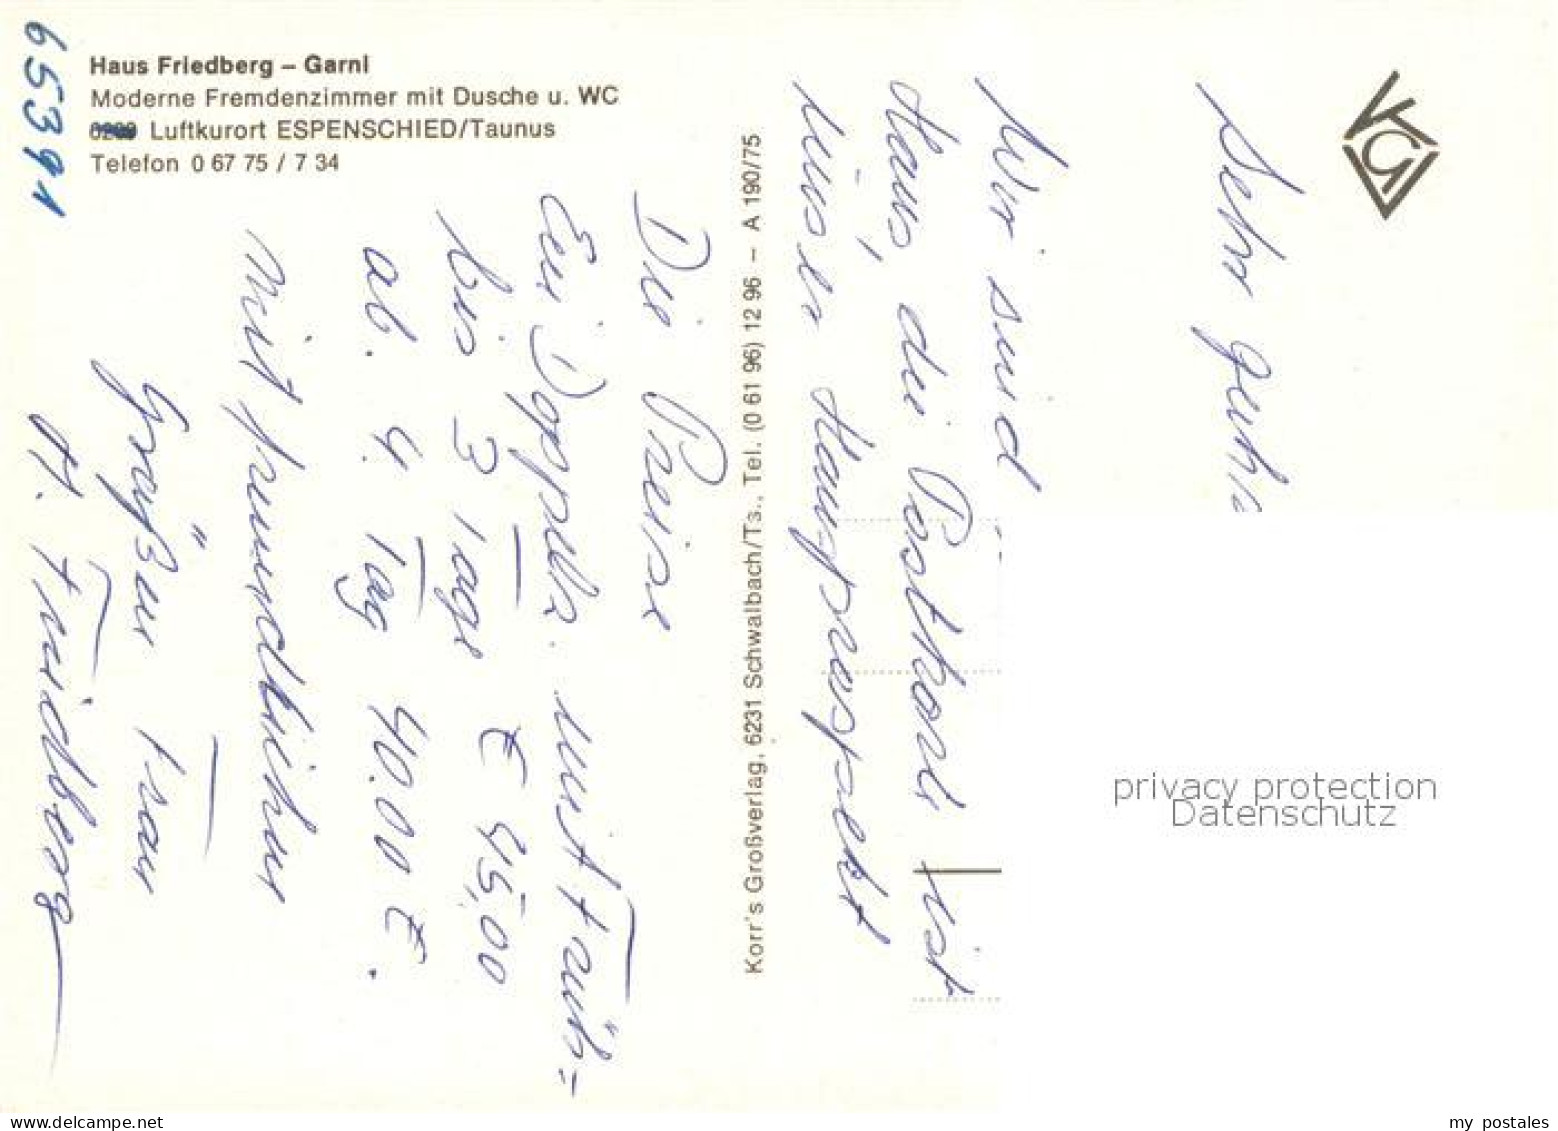 Haus Friedberg – Garni
Moderne Fremdenzimmer mit Dusche u. WC
Luftkurort ESPENSCHIED/Taunus
Telefon 0 67 75 / 7 34
65391
Sehr
Wir sind
Haus, die Postkart ist
unser Hausprospekt
Korr's Großverlag, 6231 Schwalbach/Ts., Tel. (0 61 96) 12 96 – A 190/75
Die Preise
Ein Doppelz. mit Früh=
bis 3 Tage € 45,00
ab. 4. Tag 40.00 €.
mit freundlichen
Grüßen Frau
H. Friedberg
privacy protection
Datenschutz
my postales